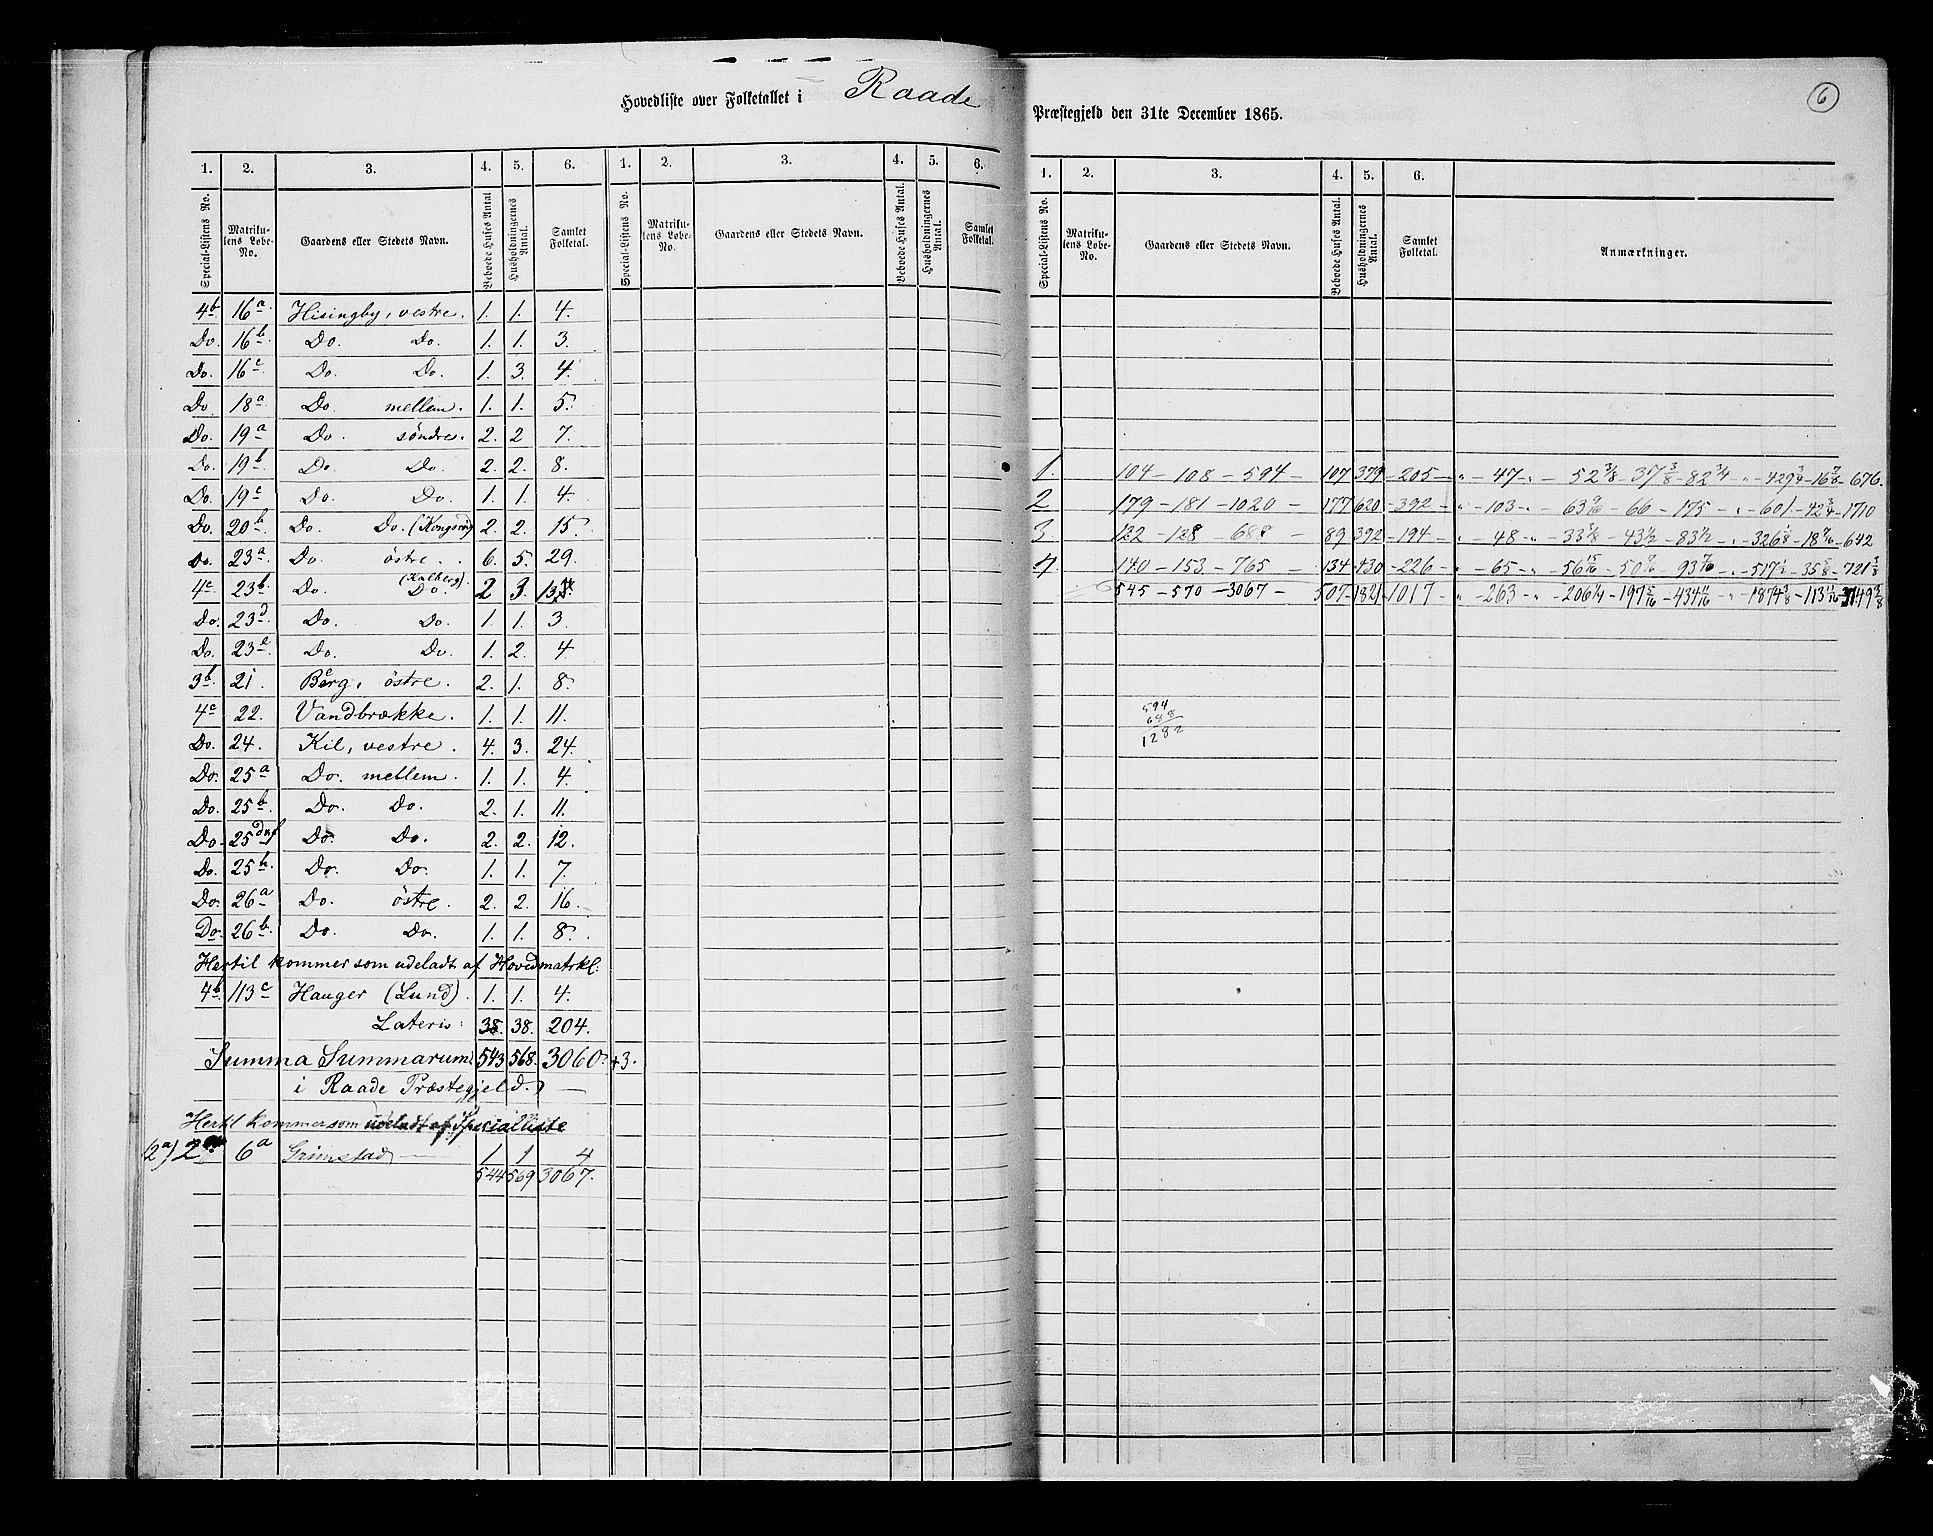 Hovedliste over Folketallet i Raade Præstegjeld den 31te December 1865.
6
1. 2. 3. 4. 5. 6. 1. 2. 3. 4. 5. 6.
Special-Listens No. Matrikulens Løbe-No. Gaardens eller Stedets Navn. Beboede Huses Antal Husholdningernes Antal. Samlet Folketal. Special-Listens No. Matrikulens Løbe-No. Gaardens eller Stedets Navn. Beboede Huses Antal. Husholdningernes Antal. Samlet Folketal.
4b 16a Hisingby, vestre. 1. 1. 4.
Do. 16b Do. Do. 1. 1. 3.
Do. 16c Do. Do. 1. 3. 4.
Do 18a Do. mellem. 1. 1. 5.
Do. 19a Do. söndre. 2. 2 7.
Do. 19b Do. Do. 2. 2. 8.
Do. 19c Do. Do. 1. 1. 4.
Do. 20b Do. Do. 2. 2. 15.
Do. 23a Do. östre. 6. 5. 29.
4c 23b Do. (Kalberg) Do. 2 3.
Do. 23d Do. Do. 1. 1. 3.
Do. 23e Do. Do. 1. 2. 4
3b. 21. Berg, östre. 2. 1. 8.
4c 22. Vandbrække. 1. 1. 11.
Do. 24. Kil, vestre. 4. 3. 24.
Do. 25a Do. mellem. 1. 1. 4.
Do. 25b Do. Do. 2. 1. 11.
Do. 25 Do. Do. 2. 2. 12.
Do. 25h Do. Do. 1. 1. 7.
Do. 26a Do. östre. 2. 2. 16.
Do. 26b Do. Do. 1. 1. 8.
Hertil kommer som udeladt af Hovedmatrkl:
4b. 113c Hauger (Lund). 1. 1. 4.
Lateris: 38. 38. 204.
Summa Summarum 543 568. 3060. +3.
i Raade Præstegjeld.
Hertil kommer som udeladt af Specialliste
(2a) 2a 6a Grimstad 1 1 4
544 569 3067.
1. 2. 3. 4. 5. 6.
Special-Listens No. Matrikulens Løbe-No. Gaardens eller Stedets Navn. Beboede Huses Antal. Husholdningernes Antal. Samlet Folketal. Anmærkninger.
1. 104 - 108 - 594 - 107 379 - 205 - " - 47 - " - 52 3/8 - 37 3/8 - 82 3/4 - " - 429 3/4 - 16 7/8 - 676.
2 179 - 181 - 1020 - 177 620 - 392 - " - 103 - " - 63 9/16 - 66 - 175 - " - 601 - 42 3/4 - 1710
3. 122 - 128 - 688 - 89 392 - 194 - " - 48 - " - 33 5/8 - 43 1/2 - 83 1/2 - " - 326 1/8 - 18 7/16 - 642
4. 140 - 153 - 765 - 134 430 - 226 - " - 65 - " - 56 15/16 - 93 7/16 - " - 517 1/2 - 721 3/8
545 - 570 - 3067 - 507 - 1821 - 1017 - " - 263 - " - 206 1/4 - 197 5/16 - 434 11/16 - " - 1874 3/8
594
688
1282